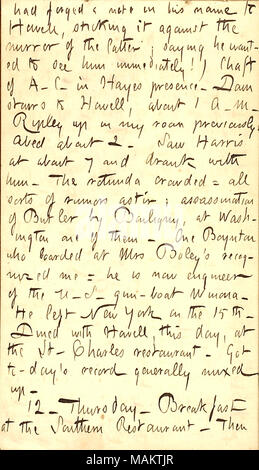 had forged a note in his name to
Howell, sticking it against the
mirror of the latter; saying he want-
ed to see him immediately! Chaff
of A-C- in Hayes presence. Dom
stairs to Howell, about 1 A-M-
Ripley up in my room previously.
Abed about 2. Saw Harris
at about 7 and drank with
him. The rotunda crowded = all
sorts of rumors astir; assassination
of Butler by                     at Wash-
ington one of them. One Boynton
who boarded at Mrs Boley's recog-
nized me = he is now engineer
of the U-S- gun-boat Winona.
He left New York on the 15th.
Dined with Howell, this day, at
the St. Charles restaurant. Got
to-day's record generally mixed
up.
12. Thursday. Breakfast
at the Southern Restaurant. Then
alamy
Image ID: MAKTJR
www.alamy.com